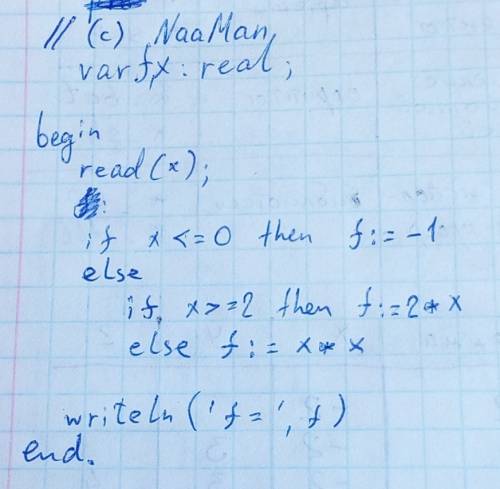 // (c) NaaMan
var f,x : real;
begin
read(x);
if x <= 0 then f:= -1
else
if x >= 2 then f:=2*x
else f:= x*x
writeln('f=', f)
end.